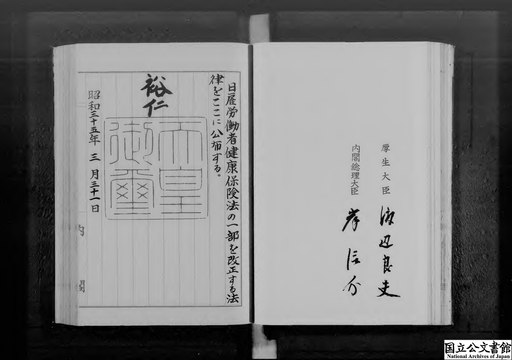 日雇労働者健康保険法の一部を改正する法
律をここに公布する。
裕仁
天皇
御璽
昭和三十五年三月三十一日
内閣
厚生大臣 渡辺良夫
内閣総理大臣 岸信介
国立公文書館
National Archives of Japan